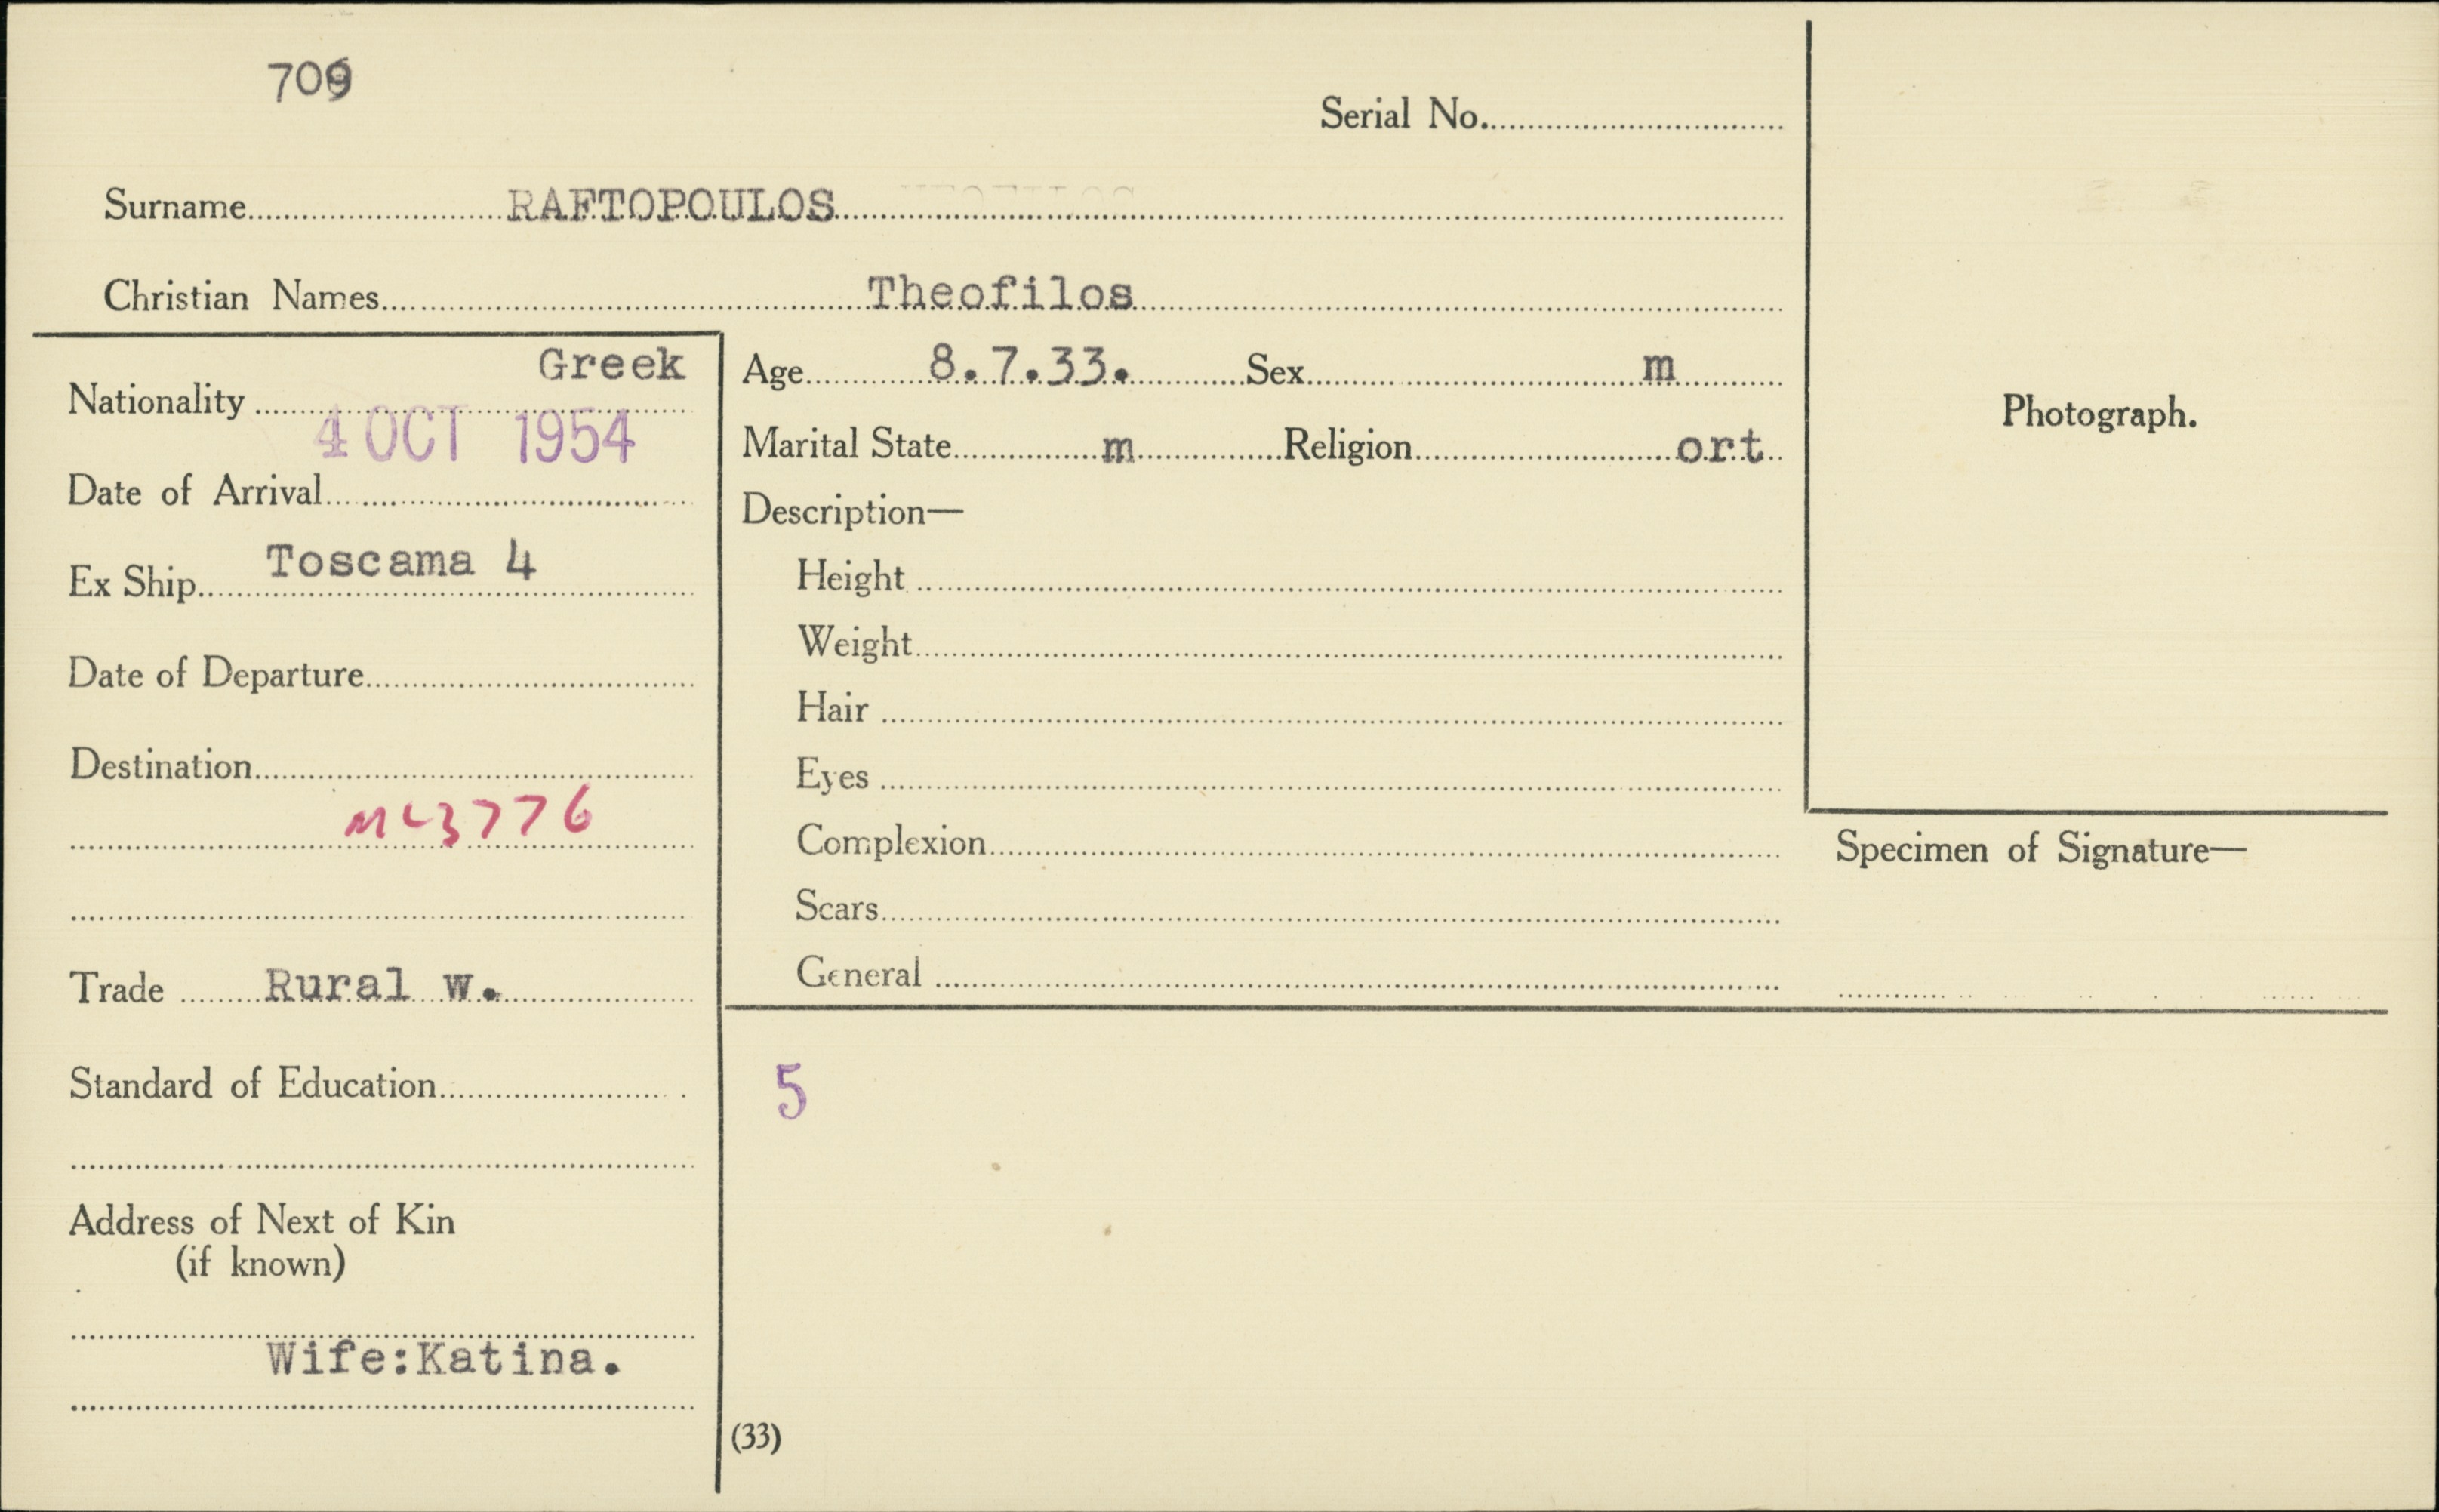 709
Serial No.
Surname RAFTOPOULOS
Christian Names Theofilos
Greek
Nationality
4 OCT 1954
Date of Arrival
Ex Ship Toscama 4
Date of Departure
Destination
MC3776
Trade Rural w.
Standard of Education
Address of Next of Kin
(if known)
Wife:Katina.
Age 8.7.33. Sex m
Marital State m Religion ort
Description—
Height
Weight
Hair
Eyes
Complexion
Scars
General
5
(33)
Photograph.
Specimen of Signature—